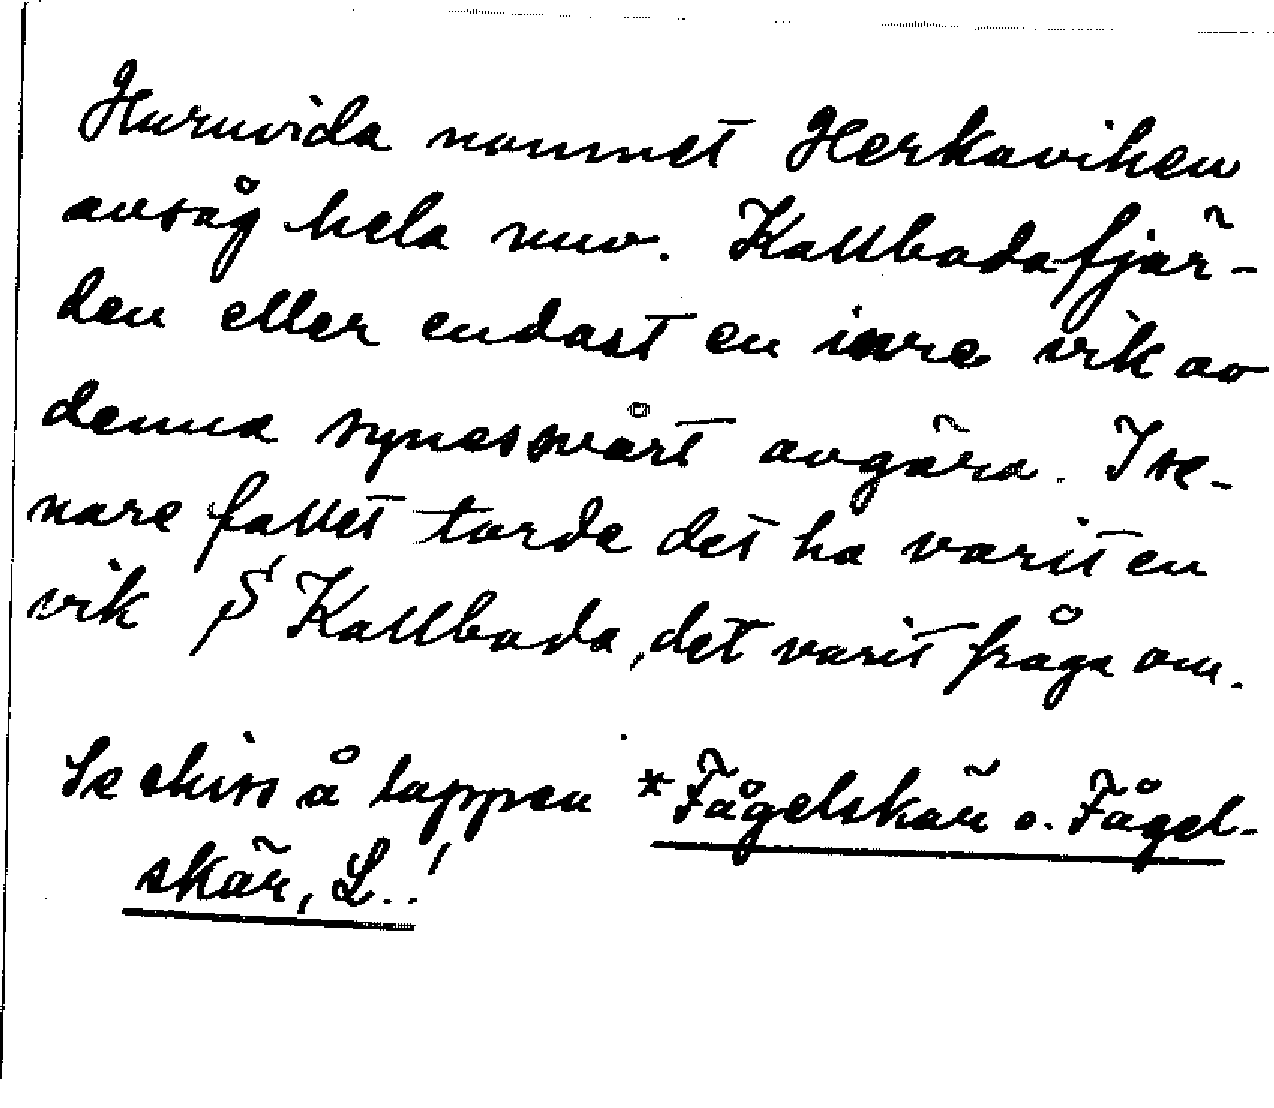 Huruvida namnet Herkaviken
avsåg hela nuv. Kallbådafjär-
den eller endast en inre vik av
denna synes svårt avgöra. I se-
nare fallet torde det ha varit en
vik S Kallbåda, det varit fråga om.
Se skiss å lappen *Fågelskär o. Fågel-
skär, L..!